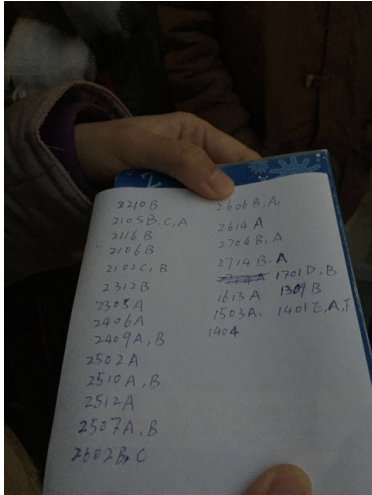 2210B
2105B,C,A
2116B
2106B
2102C,B
2312B
2305A
2406A
2409A,B
2502A
2510A,B
2512A
2507A,B
2602B,C
2606B,A
2614A
2704B,A
2714B,A
1701D,B
1613A 1309B
1503A, 1401E,A,F
1404